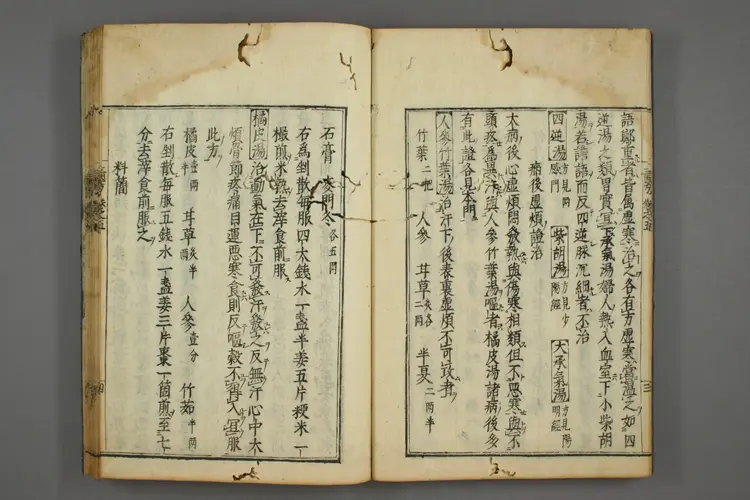 語鄭重者皆屬虛寒治之各有方虛寒當溫之如四
逆湯之類胃實宜下承氣湯婦人熱入血室下小柴胡
湯若譫語而反四逆脉沉細者不治
四逆湯方見陰門 柴胡湯方見少陽經 大承氣湯方見陽明經
病後虛煩證治
大病後心虛煩悶發熱與傷寒相類但不惡寒與不
頭疼爲異汗與人參竹葉湯嘔者橘皮湯諸病後多
有此證各見本門
人參竹葉湯治汗下後表裏虛煩不可攻者
竹葉二把 人參 甘草炙各二兩 半夏二兩半
石膏 麥門冬各五兩
右爲剉散每服四大錢水一盞半姜五片粳米一
撮煎米熟去滓食前服
橘皮湯治動氣在下不可發汗發之反無汗心中大
煩骨節疼痛目運惡寒食則反嘔穀不得入宜服
此方
橘皮壹兩半 甘草炙半兩 人參壹分 竹茹半兩
右剉散每服五錢水一盞姜三片棗一箇煎至七
分去滓食前服之
料簡